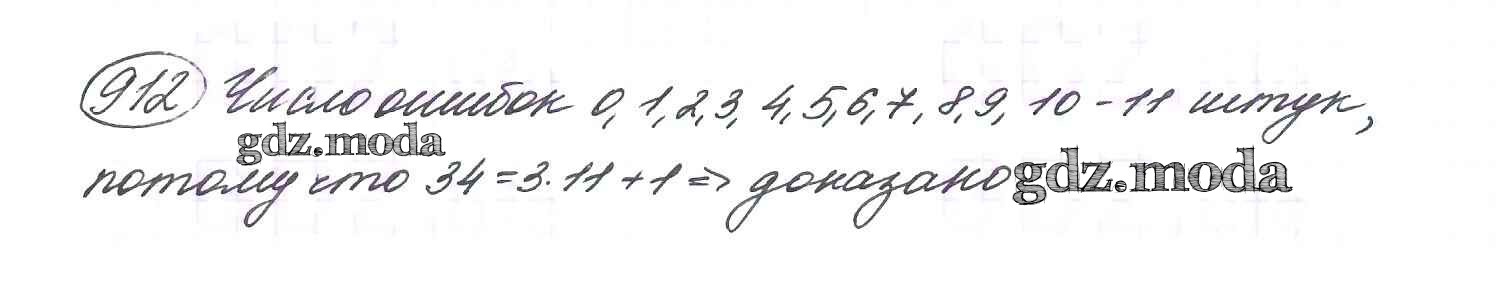 912 Число ошибок 0, 1, 2, 3, 4, 5, 6, 7, 8, 9, 10 - 11 штук,
gdz.moda
потому что 34 = 3·11 + 1 => доказано gdz.moda